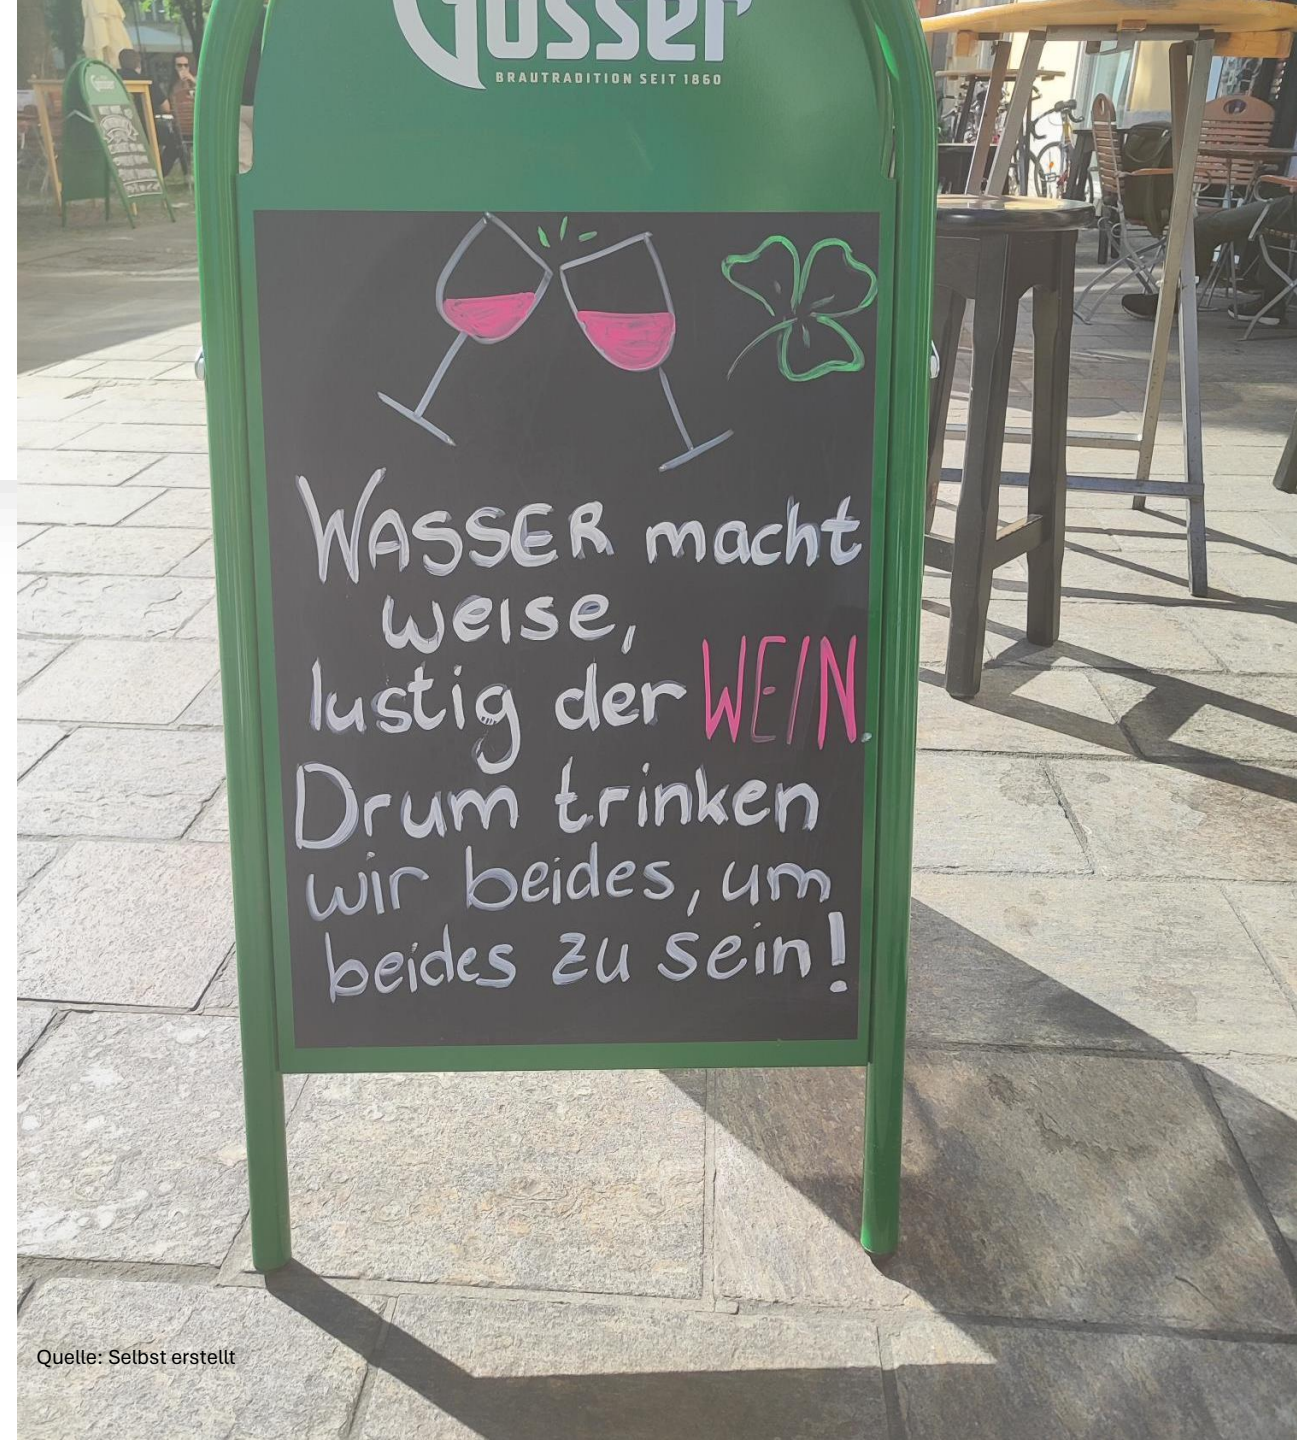 Gösser
BRAUTRADITION SEIT 1860
WASSER macht
weise,
lustig der WEIN.
Drum trinken
wir beides, um
beides zu sein!
Quelle: Selbst erstellt